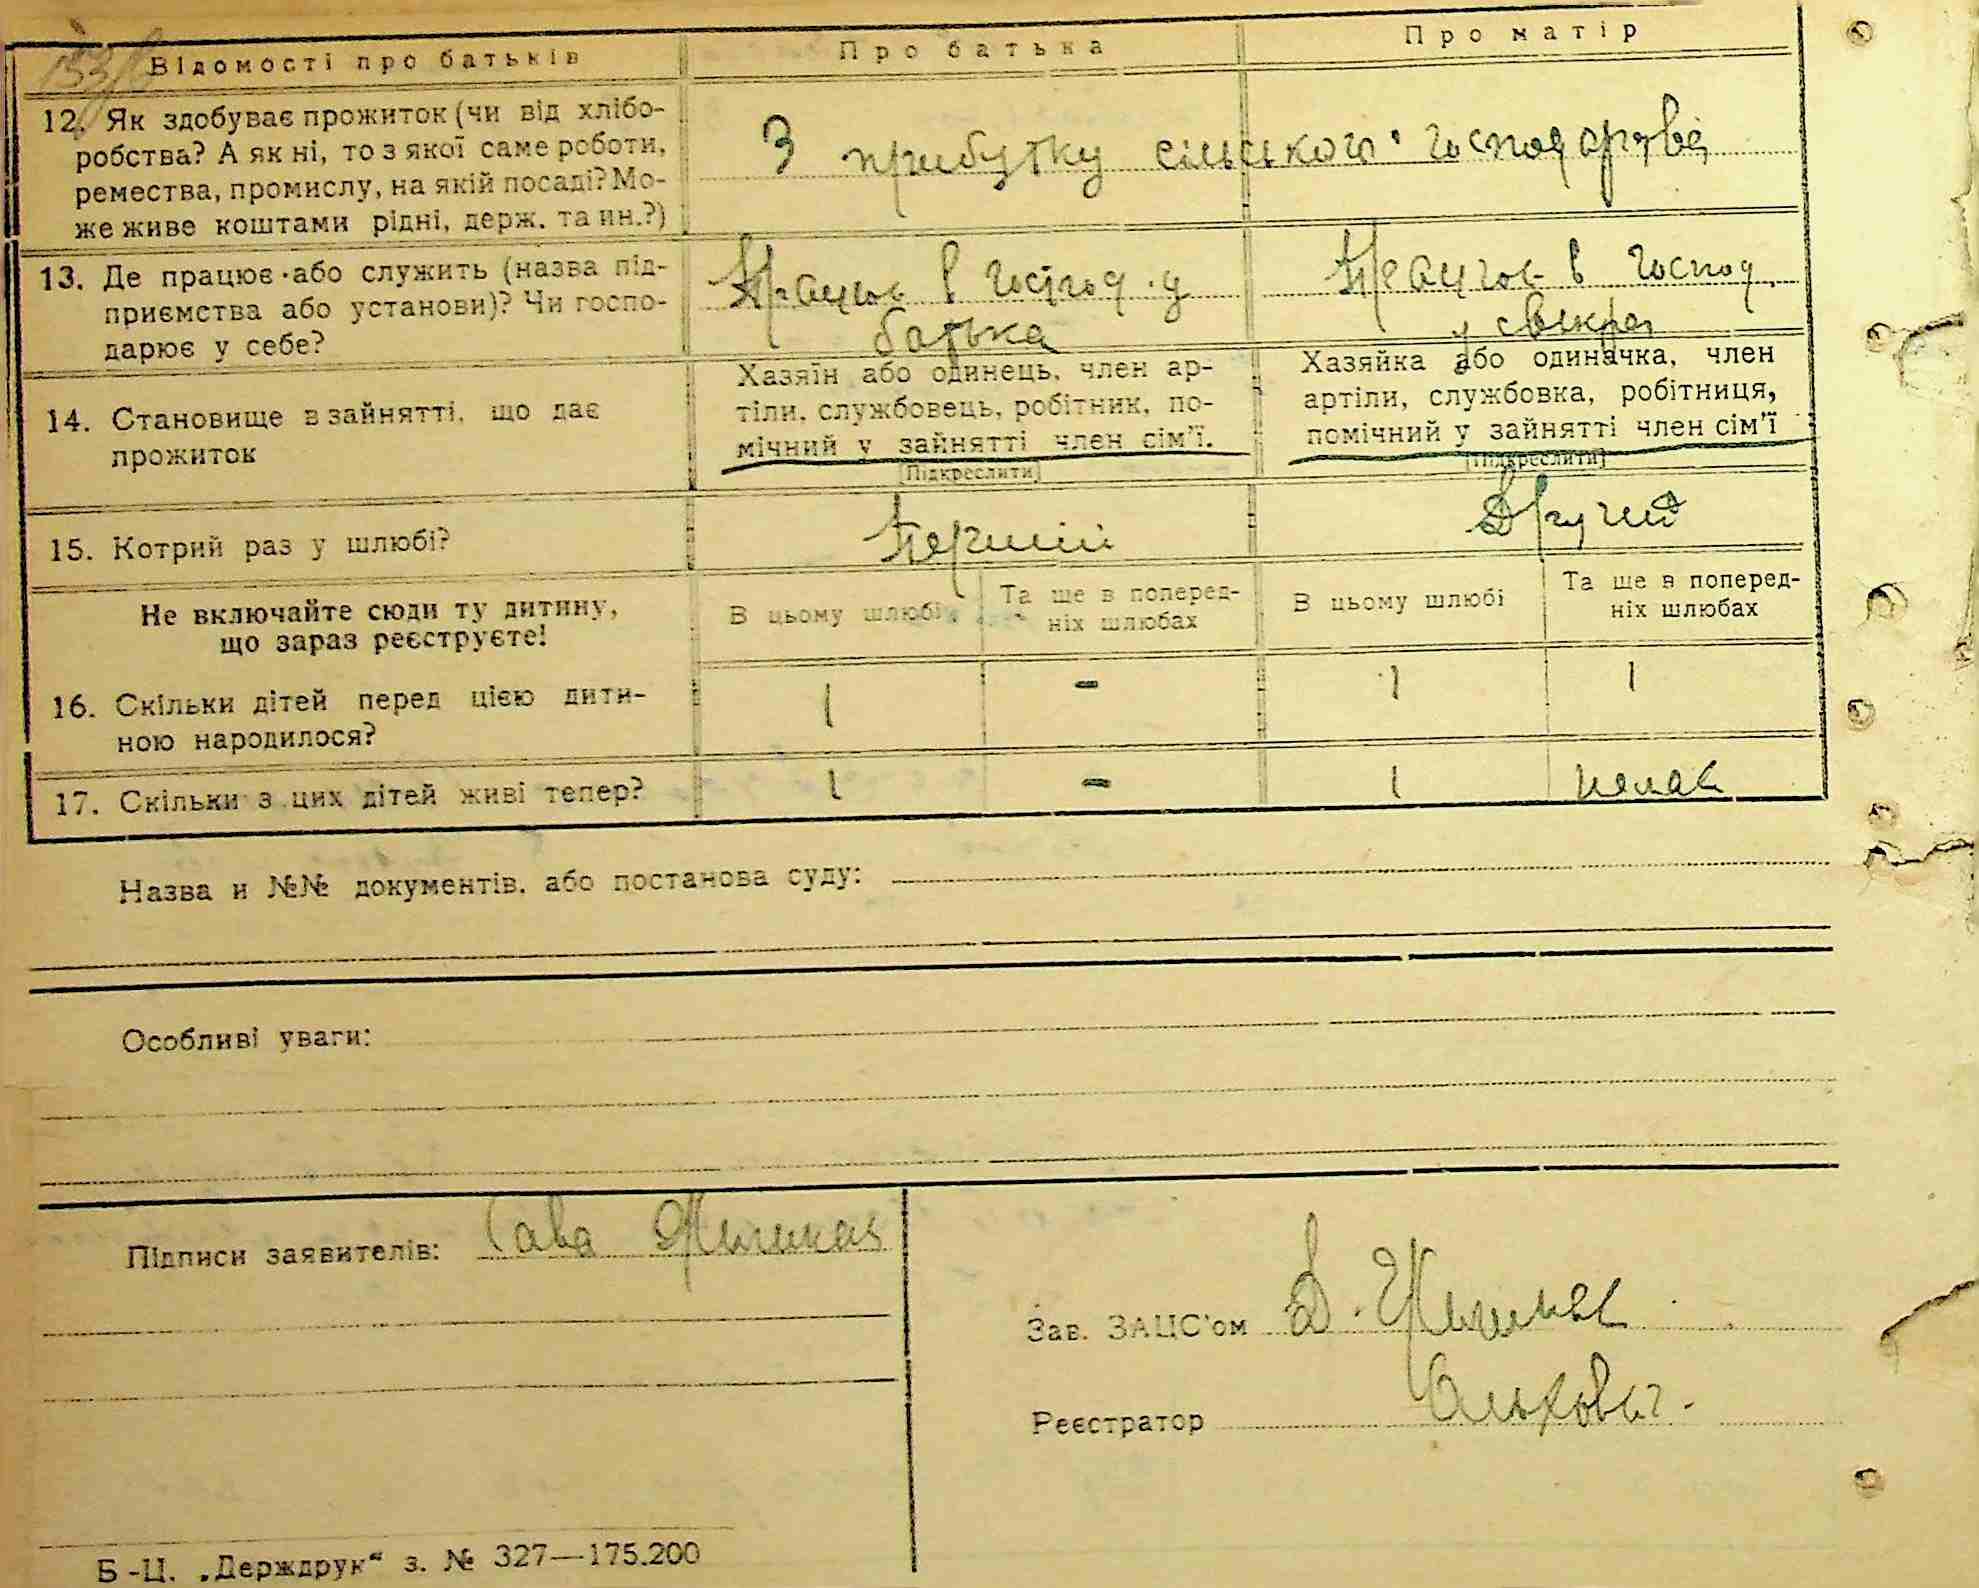 Відомості про батьків Про батька Про матір
12. Як здобуває прожиток (чи від хлібо-
робства? А як ні, то з якої саме роботи,
ремества, промислу, на якій посаді? Мо-
же живе коштами рідні, держ. та ин.?)
З прибутку сільського господарства
13. Де працює або служить (назва під-
приємства або установи)? Чи госпо-
дарює у себе?
Працює в господ. у
батька
Працює в господ.
у свекра
14. Становище в зайнятті, що дає
прожиток
Хазяїн або одинець, член ар-
тіли, службовець, робітник, по-
мічний у зайнятті член сім'ї.
[Підкреслити]
Хазяйка або одиначка, член
артіли, службовка, робітниця,
помічний у зайнятті член сім'ї
[Підкреслити]
15. Котрий раз у шлюбі? Перший Другий
Не включайте сюди ту дитину,
що зараз реєструєте!
В цьому шлюбі
Та ще в поперед-
ніх шлюбах
В цьому шлюбі
Та ще в поперед-
ніх шлюбах
16. Скільки дітей перед цією дити-
ною народилося?
1 - 1 1
17. Скільки з цих дітей живі тепер? 1 - 1 немає
Назва и №№ документів, або постанова суду:
Особливі уваги:
Підписи заявителів: Сава
Зав. ЗАЦС'ом Д.
Реєстратор
Б-Ц. „Держдрук“ з. № 327—175.200